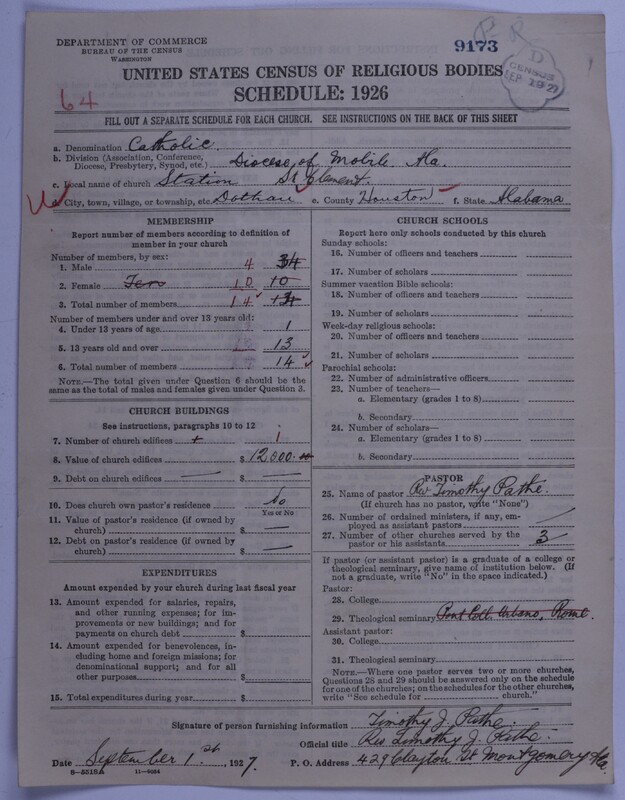 DEPARTMENT OF COMMERCE
BUREAU OF THE CENSUS
WASHINGTON
9173
P R D
CENSUS
SEP 1927
UNITED STATES CENSUS OF RELIGIOUS BODIES
SCHEDULE: 1926
64
FILL OUT A SEPARATE SCHEDULE FOR EACH CHURCH. SEE INSTRUCTIONS ON THE BACK OF THIS SHEET
a. Denomination Catholic.
b. Division (Association, Conference, Diocese, Presbytery, Synod, etc.) Diocese of Mobile Ala.
c. Local name of church Station St Clement.
d. City, town, village, or township, etc. Dothan e. County Houston f. State Alabama
MEMBERSHIP
Report number of members according to definition of
member in your church
Number of members, by sex:
1. Male 4
2. Female Ten 10 10
3. Total number of members 14
Number of members under and over 13 years old:
4. Under 13 years of age 1
5. 13 years old and over 13
6. Total number of members 14
NOTE.—The total given under Question 6 should be the
same as the total of males and females given under Question 3.
CHURCH BUILDINGS
See instructions, paragraphs 10 to 12
7. Number of church edifices + 1
8. Value of church edifices $ 12,000.
9. Debt on church edifices — $ —
10. Does church own pastor's residence No
Yes or No
11. Value of pastor's residence (if owned by
church) $ —
12. Debt on pastor's residence (if owned by
church) $ —
EXPENDITURES
Amount expended by your church during last fiscal year
13. Amount expended for salaries, repairs,
and other running expenses; for im-
provements or new buildings; and for
payments on church debt $
14. Amount expended for benevolences, in-
cluding home and foreign missions; for
denominational support; and for all
other purposes $
15. Total expenditures during year $
CHURCH SCHOOLS
Report here only schools conducted by this church
Sunday schools:
16. Number of officers and teachers
17. Number of scholars
Summer vacation Bible schools:
18. Number of officers and teachers
19. Number of scholars
Week-day religious schools:
20. Number of officers and teachers
21. Number of scholars
Parochial schools:
22. Number of administrative officers
23. Number of teachers—
a. Elementary (grades 1 to 8)
b. Secondary
24. Number of scholars—
a. Elementary (grades 1 to 8)
b. Secondary
PASTOR
25. Name of pastor Rev Timothy Pathe.
(If church has no pastor, write "None")
26. Number of ordained ministers, if any, em-
ployed as assistant pastors
27. Number of other churches served by the
pastor or his assistants 3
If pastor (or assistant pastor) is a graduate of a college or
theological seminary, give name of institution below. (If
not a graduate, write "No" in the space indicated.)
Pastor:
28. College
29. Theological seminary Pont Coll. Urbano, Rome.
Assistant pastor:
30. College
31. Theological seminary
NOTE.—Where one pastor serves two or more churches,
Questions 28 and 29 should be answered only on the schedule
for one of the churches; on the schedules for the other churches,
write "See schedule for church."
Signature of person furnishing information Timothy J. Pathe.
Official title Rev Timothy J. Pathe.
Date September 1st, 1927. P. O. Address 429 Clayton St Montgomery Ala.
8—5515A 11—9024